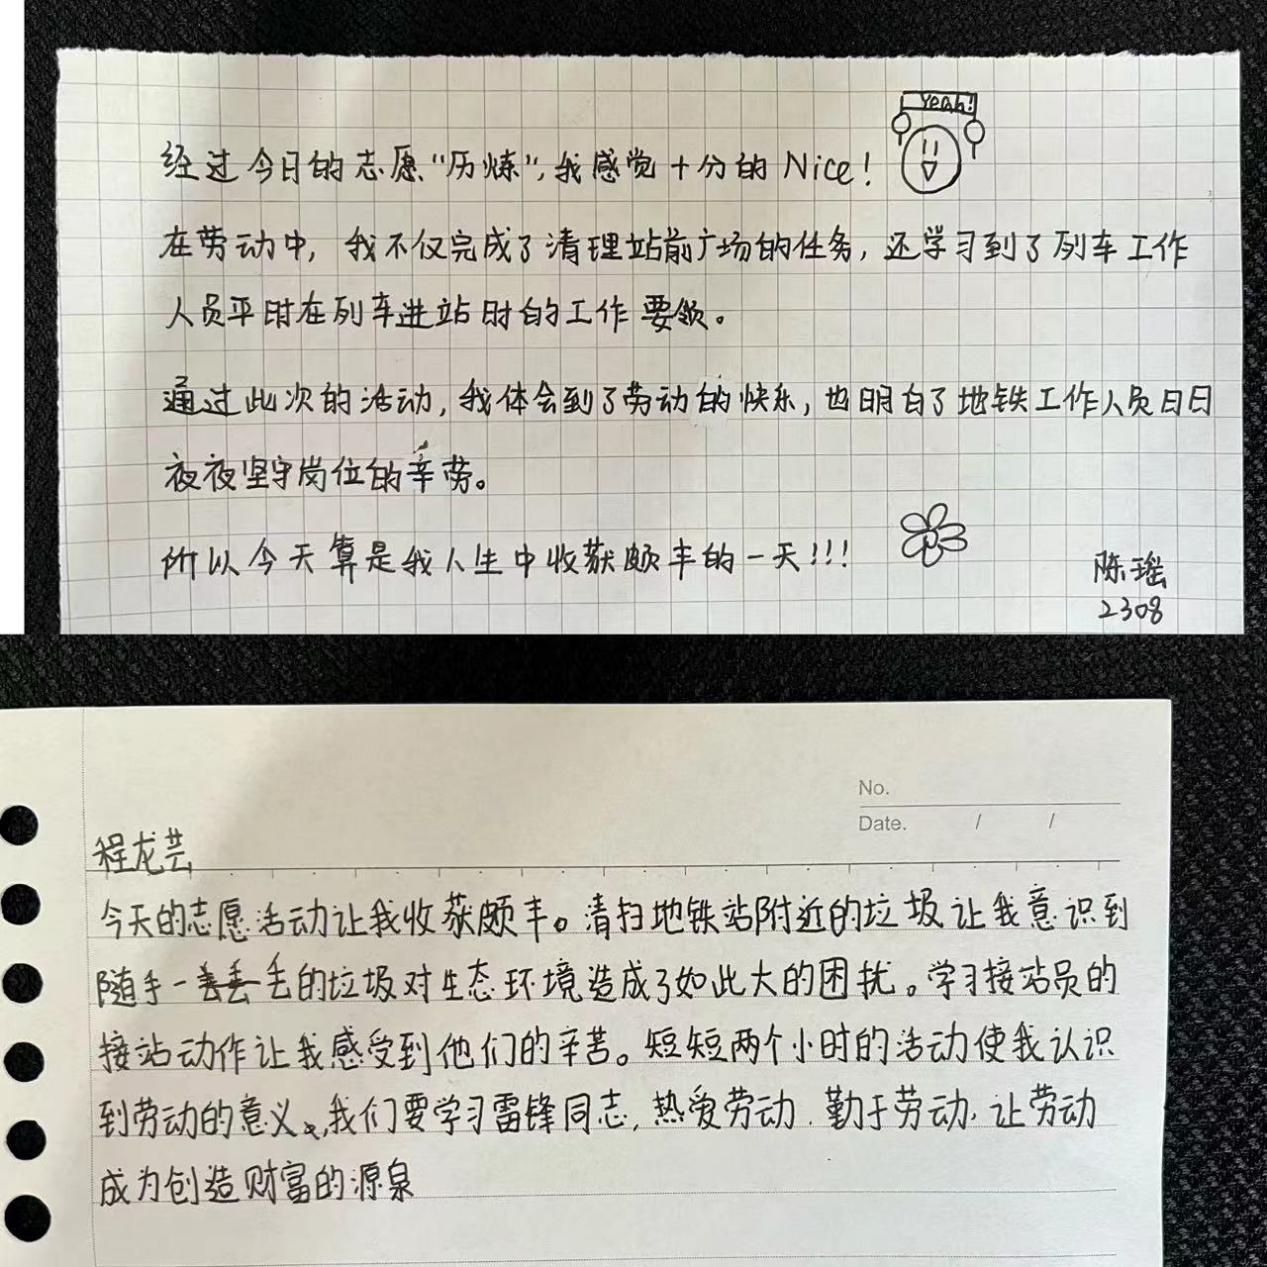 Yeah!
经过今日的志愿“历炼”，我感觉十分的Nice！
在劳动中，我不仅完成了清理站前广场的任务，还学习到了列车工作
人员平时在列车进站时的工作要领。
通过此次的活动，我体会到了劳动的快乐，也明白了地铁工作人员日日
夜夜坚守岗位的辛劳。
所以今天算是我人生中收获颇丰的一天!!!
陈瑶
2308
No.
Date. / /
程龙芸
今天的志愿活动让我收获颇丰。清扫地铁站附近的垃圾让我意识到
随手一丢的垃圾对生态环境造成了如此大的困扰。学习接站员的
接站动作让我感受到他们的辛苦。短短两个小时的活动使我认识
到劳动的意义，我们要学习雷锋同志，热爱劳动．勤于劳动．让劳动
成为创造财富的源泉